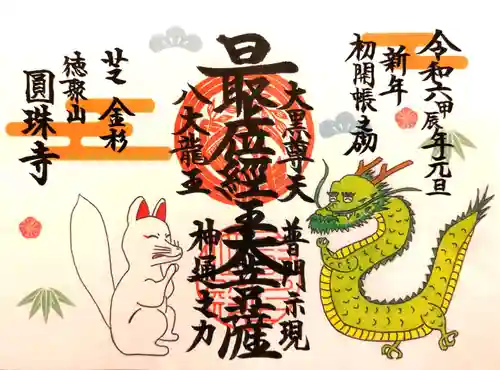 令和六甲辰年元旦
新年
初開帳之砌
大黒尊天
普門示現
最上位経王大菩薩
八大龍王
神通之力
芝 金杉
徳聚山
圓珠寺